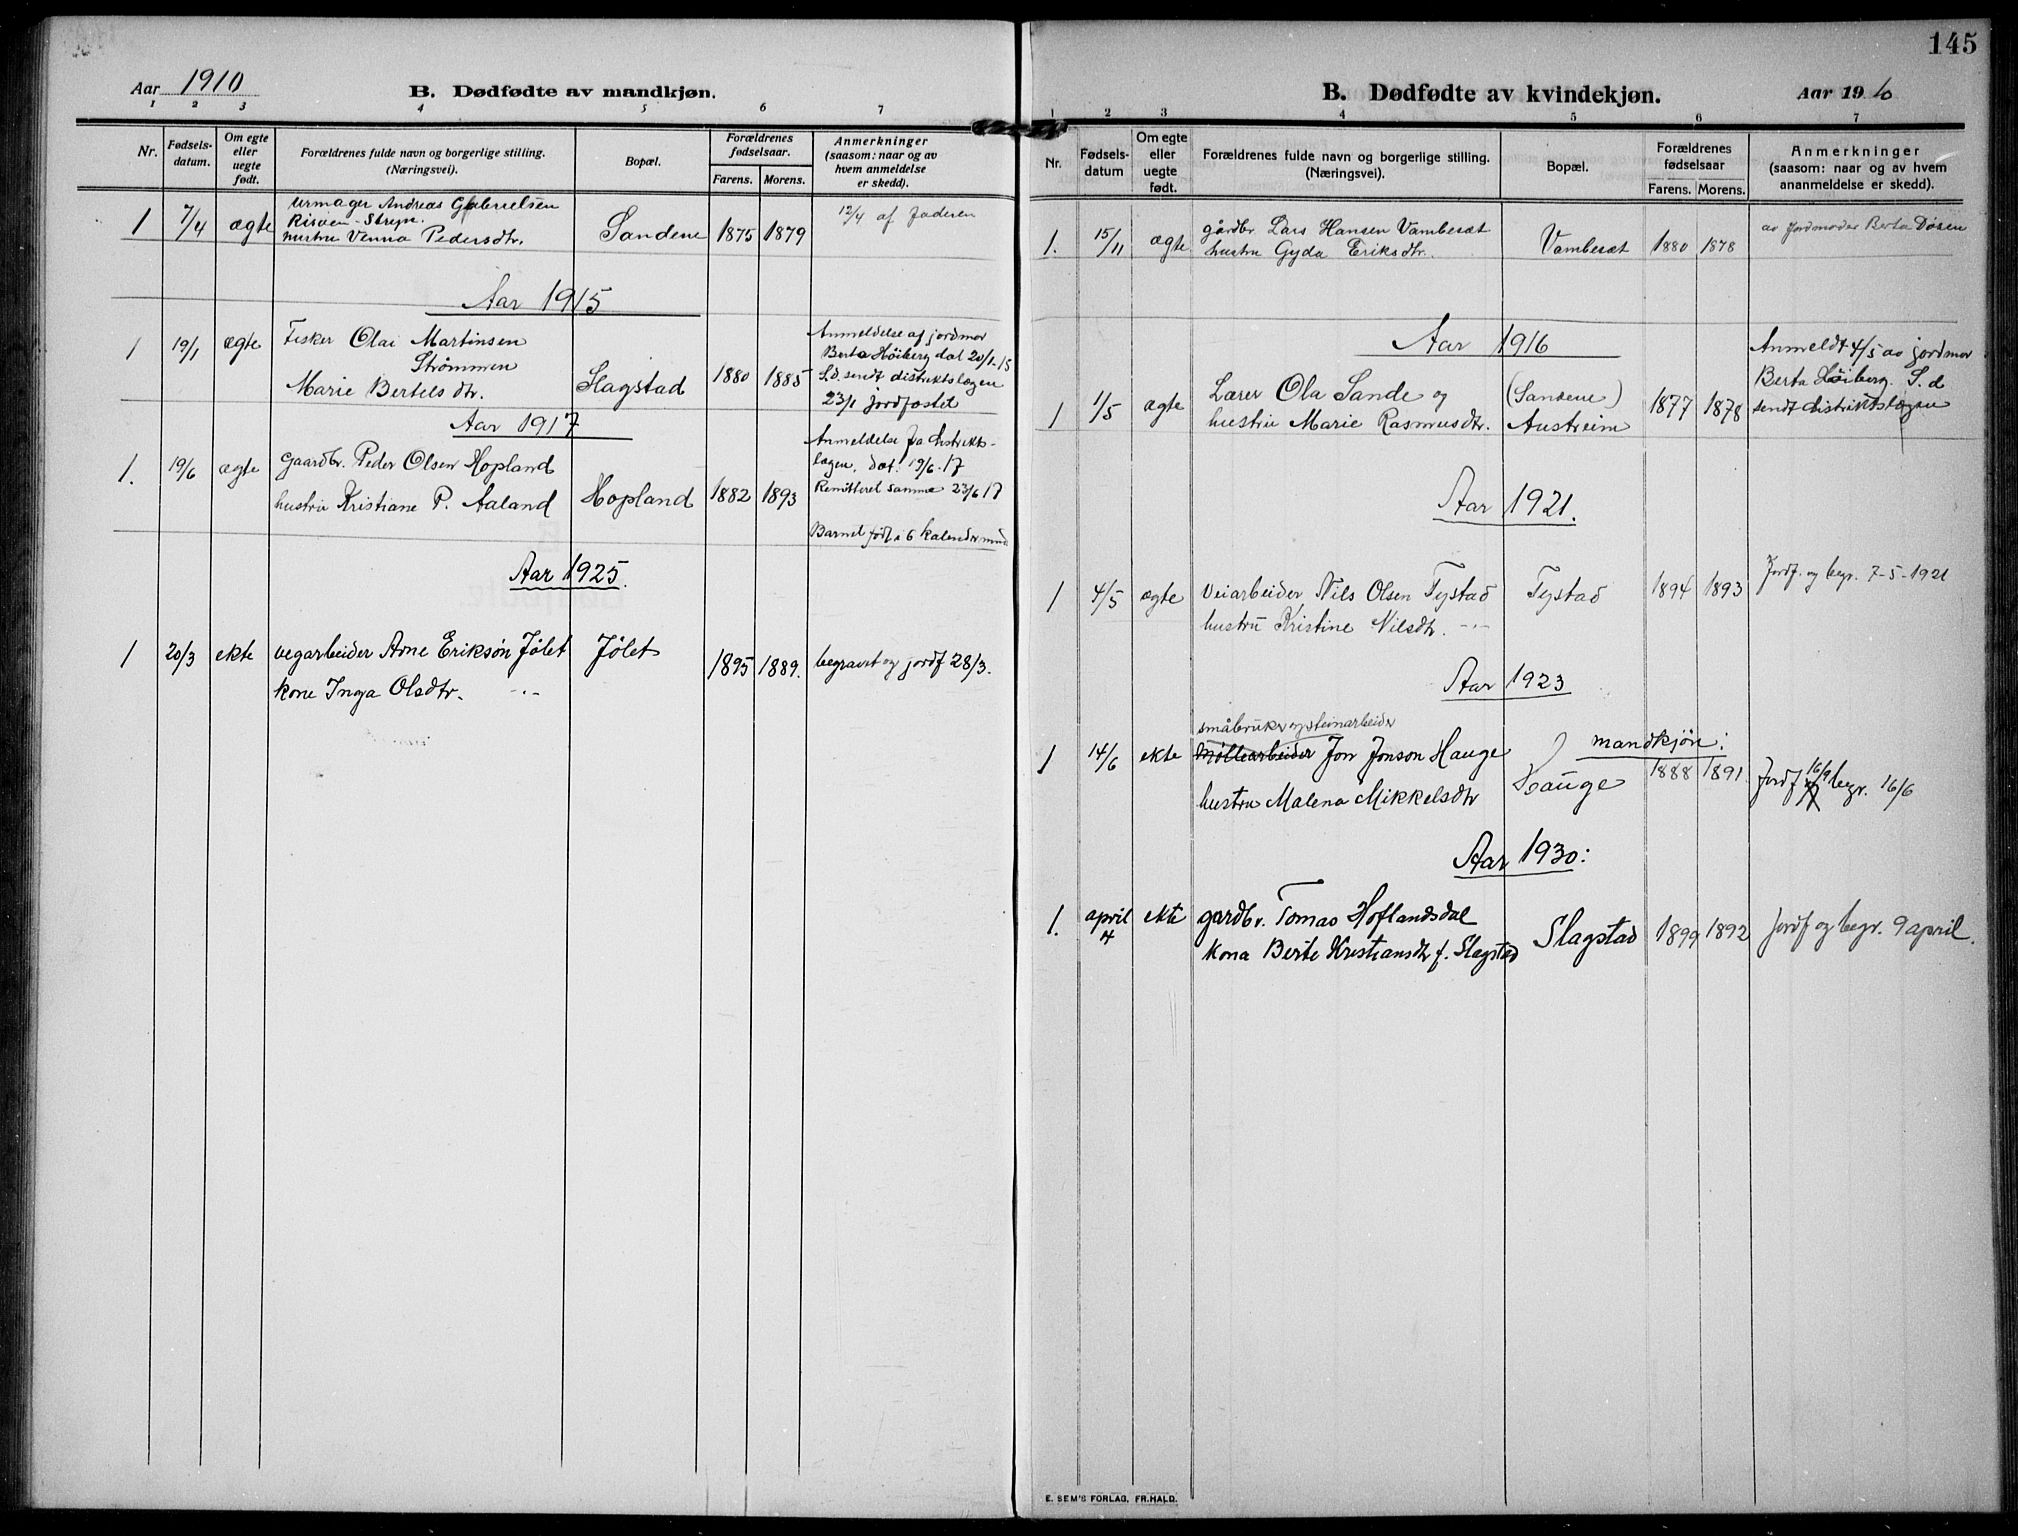 Aar 1910
B. Dødfødte av mandkjøn.
1 2 3 4 5 6 7
Nr.
Fødsels-
datum.
Om egte
eller
uegte
født.
Forældrenes fulde navn og borgerlige stilling.
(Næringsvei).
Bopæl.
Forældrenes
fødselsaar.
Farens. Morens.
Anmerkninger
(saasom: naar og av
hvem anmeldelse
er skedd).
Urmager Andreas Gabrielsen
Risøen - Stryn.
1 7/4 ægte hustru Venna Pedersdtr. Sandene 1875 1879 12/4 af faderen
Aar 1915
1 19/1 ægte Fisker Olai Martinsen
Strømmen
Marie Bertelsdtr. Slagstad 1880 1885
Anmeldelse af jordmor
Berta Höiberg dat 20/1-15
S.d. sendt distriktslægen
23/1 Jordfæstet
Aar 1917
1. 19/6 ægte Gaardbr. Peder Olsen Hopland
hustru Kristiane P. Aaland Hopland 1882 1893
Anmeldelse fra distrikts-
lægen, dat. 19/6-17
Remitteret samme 23/6 17
Barnet født i 6 kalendermnd
Aar 1925.
1 20/3 ekte vegarbeider Arne Eriksøn Jølet Jølet 1895 1889. begravet og jordf 28/3.
kone Inga Olsdtr. -"-
145
B. Dødfødte av kvindekjøn.
Aar 1910
1 2 3 4 5 6 7
Nr.
Fødsels-
datum
Om egte
eller
uegte
født.
Forældrenes fulde navn og borgerlige stilling.
(Næringsvei).
Bopæl.
Forældrenes
fødselsaar
Farens. Morens.
Anmerkninger
(saasom: naar og av hvem
ananmeldelse er skedd).
1. 15/11 ægte gårdbr. Lars Hansen Vambesæt
hustru Gyda Eriksdtr. Vambesæt 1880 1878 av Jordmoder Berta Døsen
Aar 1916
1 1/5 ægte Lærer Ola Sande og (Sandene)
hustru Marie Rasmusdtr. Austreim 1877 1878
Anmeldt 4/5 av jordmor
Berta Höiberg. S. d
sendt distriktslægen
Aar 1921.
1 4/5 ægte Veiarbeider Nils Olsen Tystad Tystad 1894 1893 Jordf. og begr. 7-5-1921
hustru Kristine Nilsdtr. -"-
Aar 1923
småbruker og steinarbeider
1 14/6 ekte Møllearbeider Jon Jonson Hauge mandkjøn:
hustru Malena Mikkelsdtr Hauge 1888 1891. Jordf 16/9 begr. 16/6
Aar 1930:
1. april 4 ekte gardbr. Tomas Hoflandsdal
kona Berte Kristiansdtr f. Slagstad Slagstad 1899 1892 Jordf og begr. 9 april.
E. SEM'S FORLAG, FR.HALD.